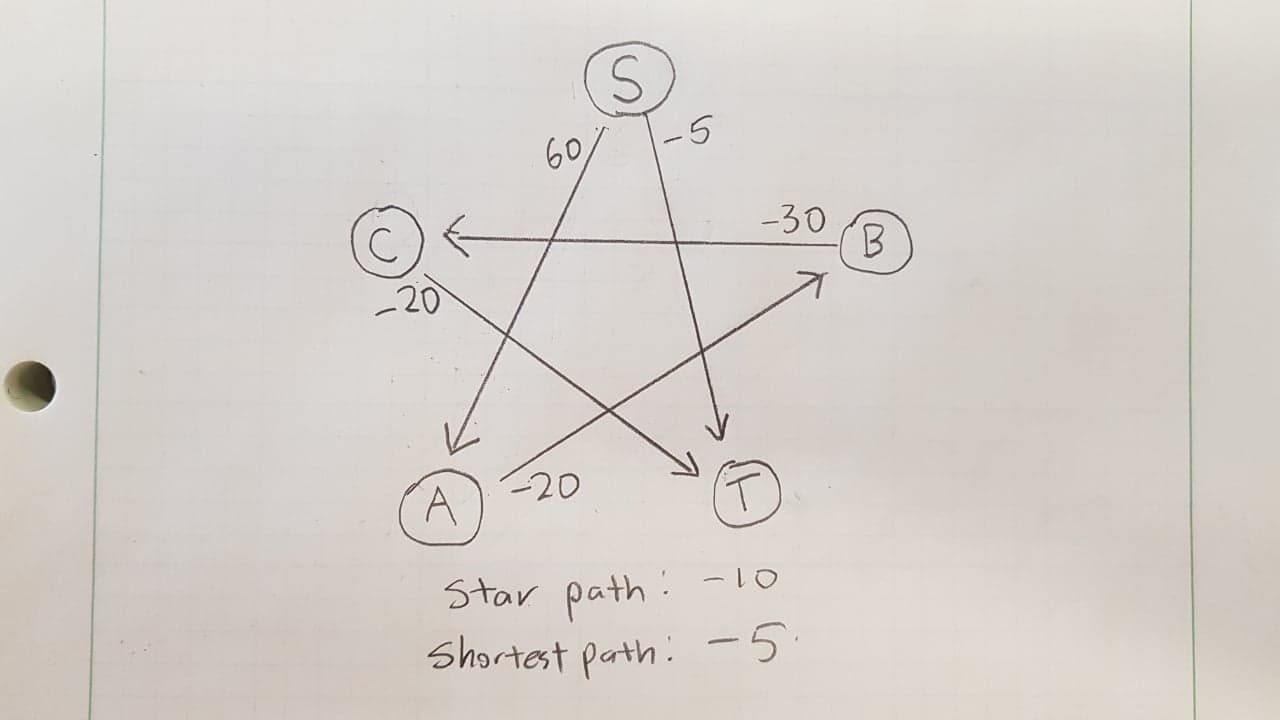 S
60 -5
C -30 B
-20
A -20 T
Star path: -10
Shortest path: -5